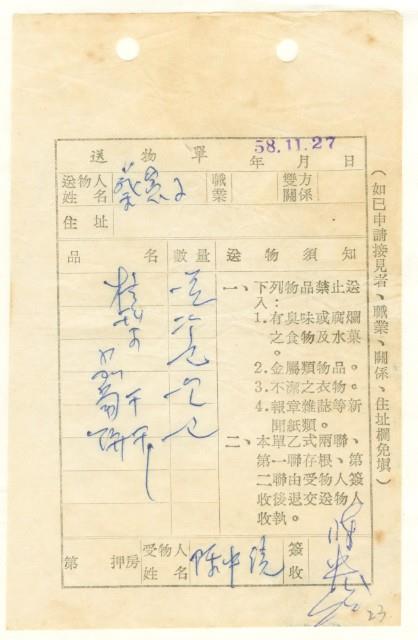 送物單 年 月 日
58.11.27
送物人姓名 職業 雙方關係
住址
品名 數量 送物須知
一、下列物品禁止送
入：
1.有臭味或腐爛
之食物及水菓。
2.金屬類物品。
3.不潔之衣物。
4.報章雜誌等新
聞紙類。
二、本單乙式兩聯、
第一聯存根、第
二聯由受物人簽
收後退交送物人
收執。
第 押房 受物人姓名 陳中統 簽收
(如已申請接見者、職業、關係、住址欄免填)
23